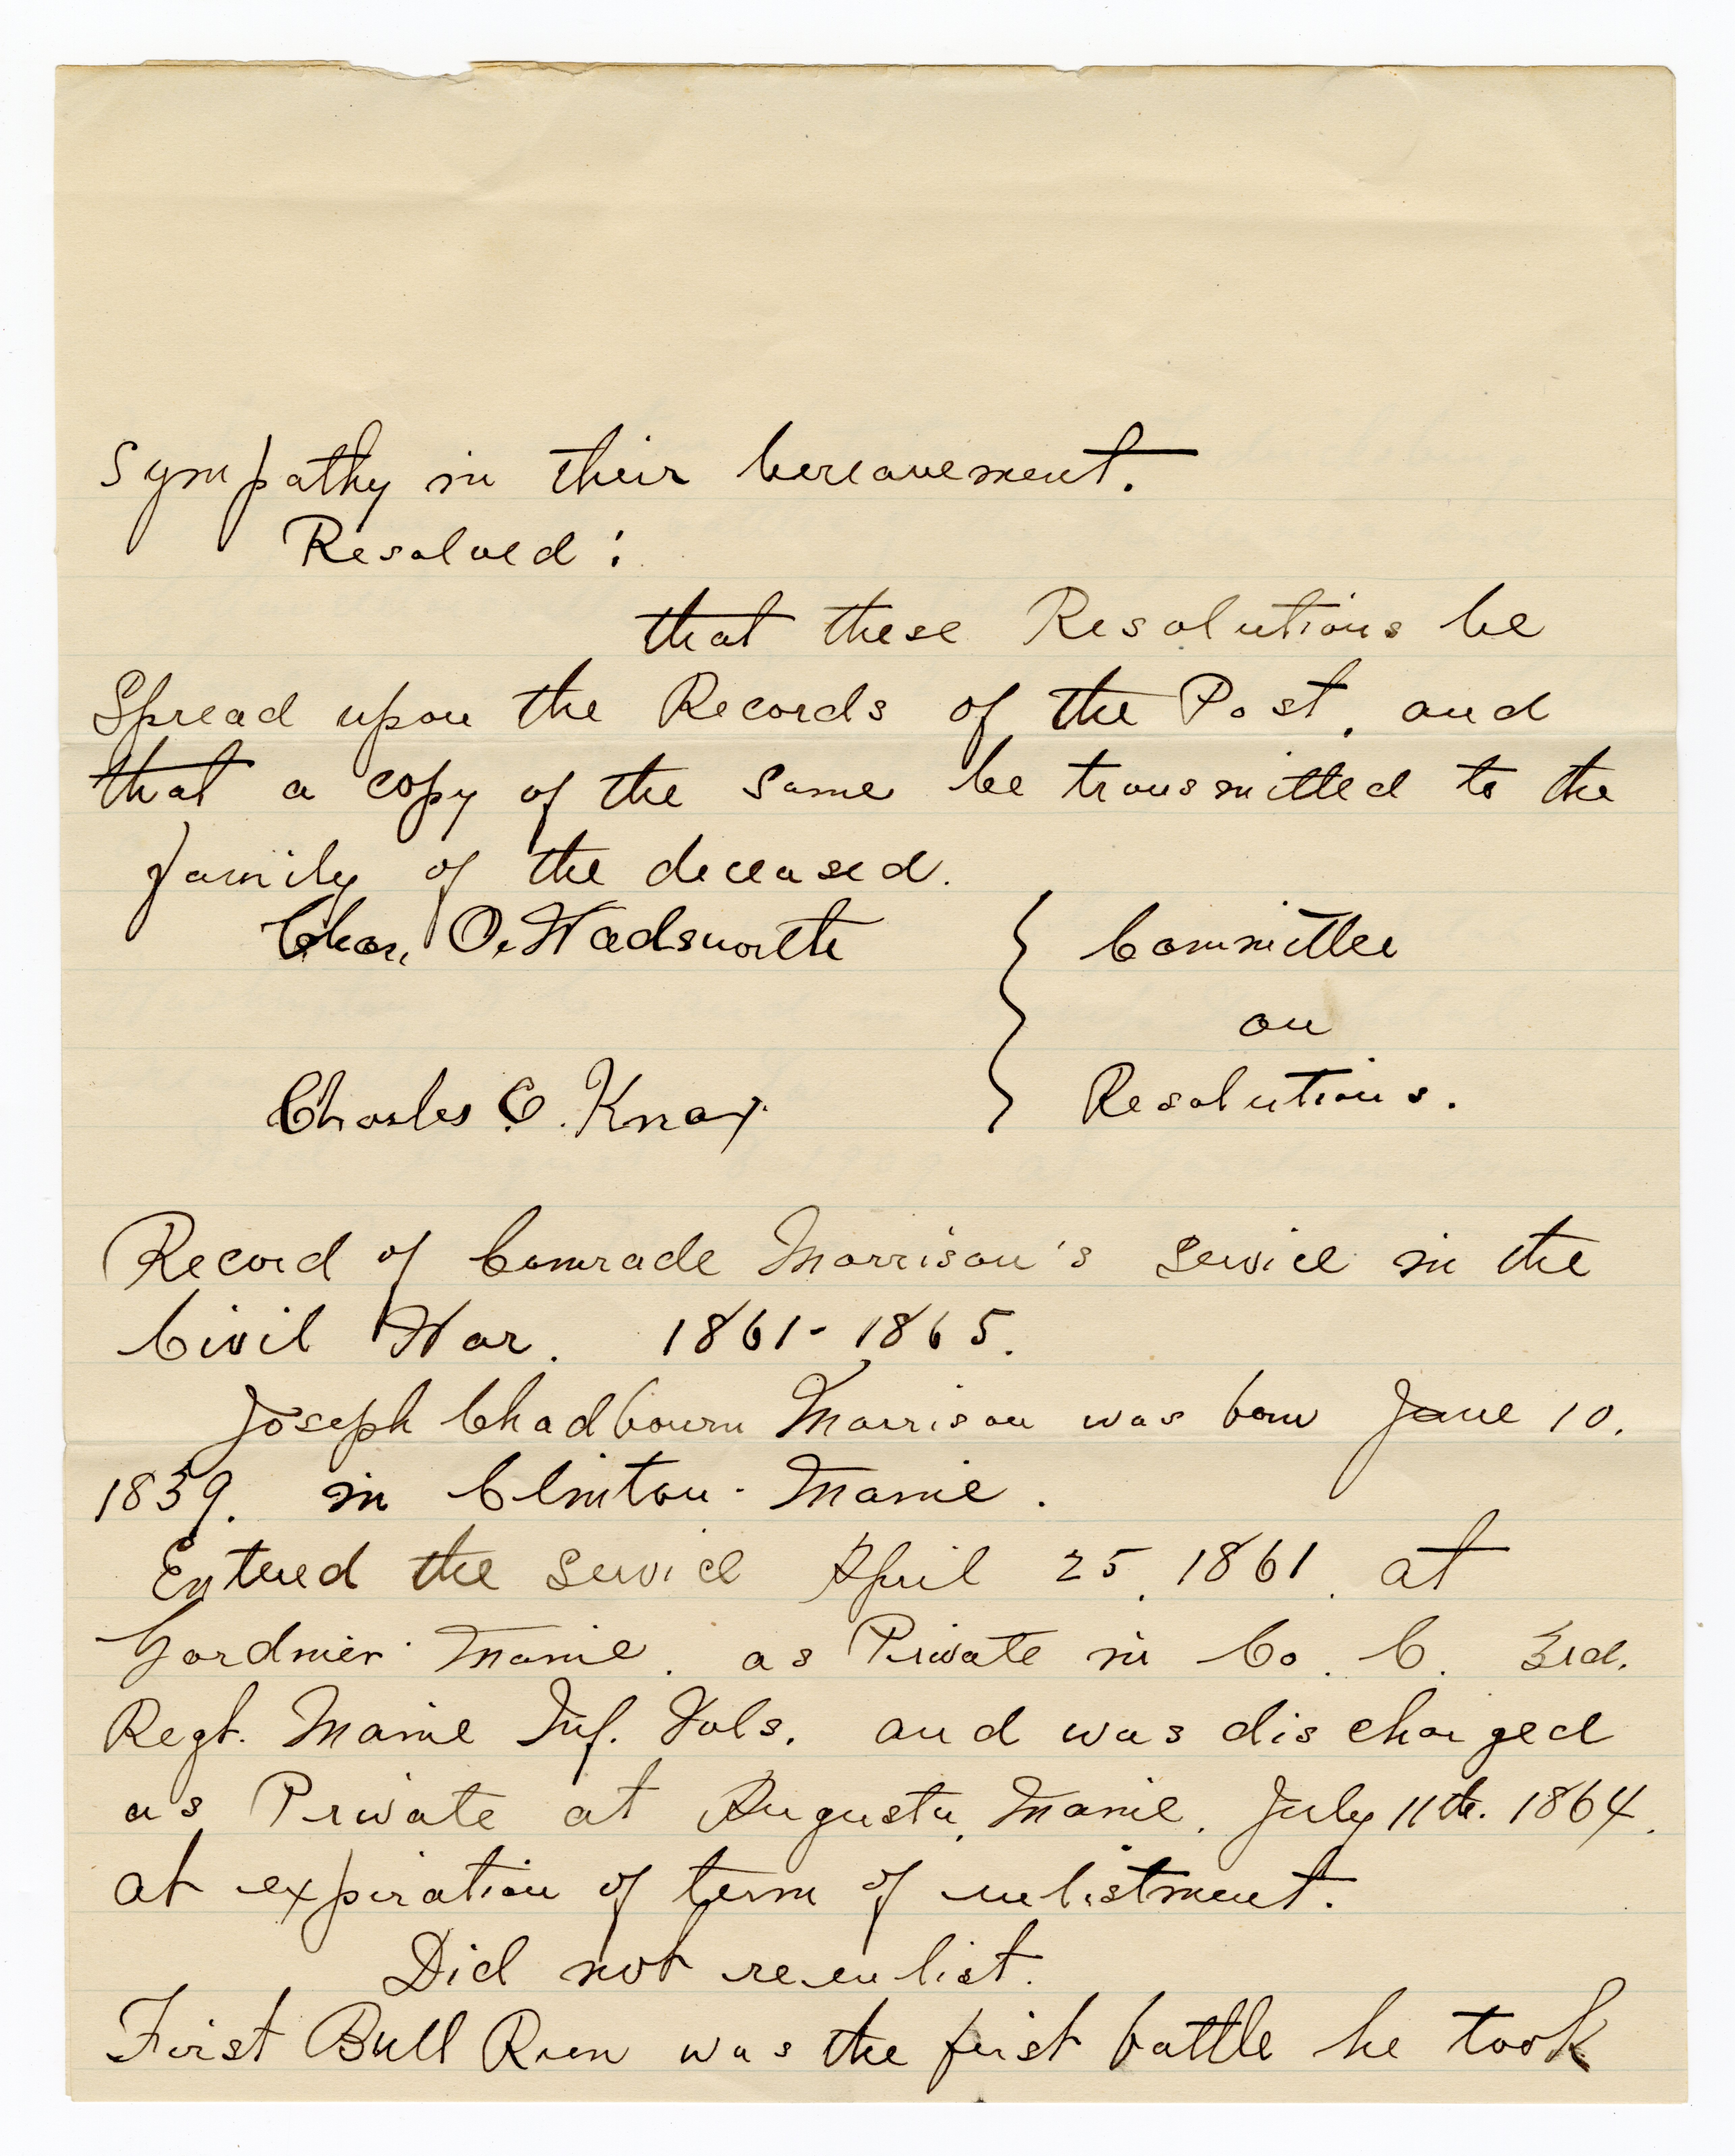 Sympathy in their bereavement.
Resolved:
that these Resolutions be
Spread upon the Records of the Post, and
that a copy of the same be transmitted to the
family of the deceased.
Chas. O. Wadsworth } Committee
on
Charles O. Knox Resolutions.
Record of Comrade Morrison's service in the
Civil War. 1861-1865.
Joseph Chadbourn Morrison was born June 10.
1839. in Clinton - Maine.
Entered the service April 25, 1861, at
Gardiner Maine, as Private in Co. C. 3rd.
Regt. Maine Inf. Vols. and was discharged
as Private at Augusta, Maine, July 11th. 1864.
at expiration of term of enlistment.
Did not reenlist.
First Bull Run was the first battle he took